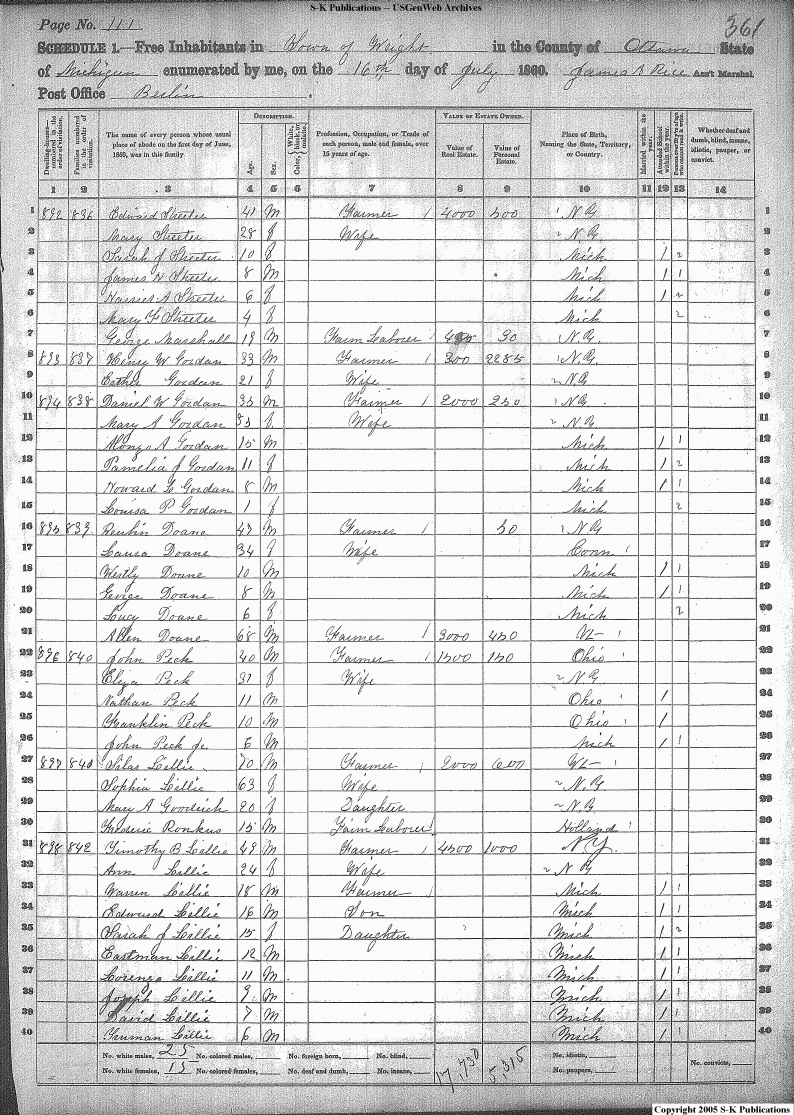 S-K Publications – USGenWeb Archives
Page No. 111
361
SCHEDULE 1.—Free Inhabitants in Town of Wright in the County of Ottawa State
of Michigan enumerated by me, on the 16th day of July 1860. James D Rice Ass't Marshal.
Post Office Berlin
Dwelling-houses—numbered in the order of visitation.
Families numbered in the order of visitation.
The name of every person whose usual place of abode on the first day of June, 1860, was in this family.
DESCRIPTION.
Age.
Sex.
Color, White, black, or mulatto.
Profession, Occupation, or Trade of each person, male and female, over 15 years of age.
VALUE OF ESTATE OWNED.
Value of Real Estate.
Value of Personal Estate.
Place of Birth, Naming the State, Territory, or Country.
Married within the year.
Attended School within the year.
Persons over 20 y'rs of age who cannot read & write.
Whether deaf and dumb, blind, insane, idiotic, pauper, or convict.
1 2 3 4 5 6 7 8 9 10 11 12 13 14
1 892 836 Edward Streeter 41 M Farmer 1 4000 500 1 N.Y. 1
2 Mary Streeter 28 f Wife 2 N.Y. 2
3 Sarah J Streeter 10 f Mich 1 2 3
4 James H Streeter 8 M Mich 1 1 4
5 Harriet A Streeter 6 f Mich 1 2 5
6 Mary F Streeter 4 f Mich 2 6
7 George Marshall 19 M Farm Laborer 1 30 1 N.Y. 7
8 893 837 Henry W Gordan 33 M Farmer 1 300 2285 1 N.Y. 8
9 Esther Gordan 21 f Wife 2 N.Y. 9
10 894 838 Daniel W Gordan 35 M Farmer 1 2000 250 1 N.Y. 10
11 Mary A Gordan 33 f Wife 2 N.Y. 11
12 Alonzo A Gordan 15 M Mich 1 1 12
13 Pamelia J Gordan 11 f Mich 1 2 13
14 Howard L Gordan 8 M Mich 1 1 14
15 Louisa P Gordan 1 f Mich 2 15
16 895 839 Reubin Doane 43 M Farmer 1 50 1 N.Y. 16
17 Laura Doane 34 f Wife Conn 1 17
18 Westly Doane 10 M Mich 1 1 18
19 George Doane 8 M Mich 1 1 19
20 Lucy Doane 6 f Mich 2 20
21 Allen Doane 68 M Farmer 1 3000 450 Vt 1 21
22 896 840 John Peck 40 M Farmer 1 1500 150 Ohio 1 22
23 Eliza Peck 31 f Wife 2 N.Y. 23
24 Nathan Peck 11 M Ohio 1 1 24
25 Franklin Peck 10 M Ohio 1 1 25
26 John Peck jr. 6 M Mich 1 1 26
27 897 840 Silas Lillie 70 M Farmer 1 2000 600 Vt 1 27
28 Sophia Lillie 63 f Wife 2 N.Y. 28
29 Mary A Goodrich 20 f Daughter 2 N.Y. 29
30 Frederic Ronkus 15 M Farm Laborer 1 Holland 1 30
31 898 842 Timothy B Lillie 49 M Farmer 1 4500 1000 N.Y. 31
32 Ann Lillie 24 f Wife 2 N.Y. 32
33 Warren Lillie 18 M Farmer 1 Mich 1 1 33
34 Edward Lillie 16 M Son Mich 1 1 34
35 Sarah J Lillie 15 f Daughter Mich 1 2 35
36 Eastman Lillie 12 M Mich 1 1 36
37 Lorenzo Lillie 11 M Mich 1 1 37
38 Joseph Lillie 9 M Mich 1 1 38
39 David Lillie 7 M Mich 1 1 39
40 Truman Lillie 6 M Mich 1 1 40
No. white males, 25 No. colored males, No. foreign born, No. blind, 17,730 5,315 No. idiotic,
No. white females, 15 No. colored females, No. deaf and dumb, No. insane, No. paupers, No. convicts,
Copyright 2005 S-K Publications